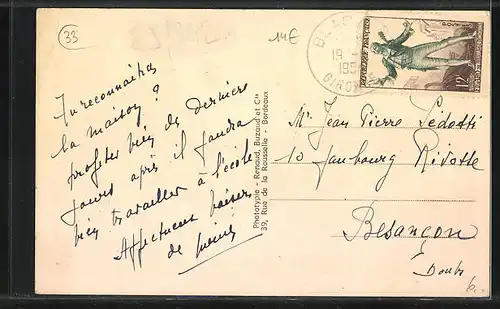 33
14€
Tu reconnaitras
la maison ?
profiter bien de derniers
jours après il faudra
bien travailler à l'école
Affectueux baisers
de
Phototypie - Renaud, Buzaud et Cie
39, Rue de la Rousselle - Bordeaux
GIRONDE
REPUBLIQUE FRANÇAISE
12
Mr Jean Pierre Ledotti
10 faubourg Rivotte
Besançon
Doubs